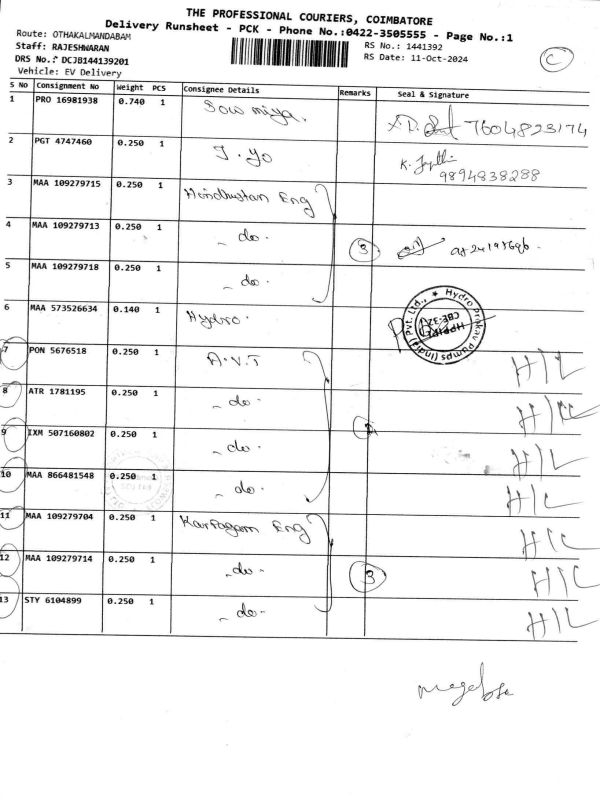 THE PROFESSIONAL COURIERS, COIMBATORE
Delivery Runsheet - PCK - Phone No.:0422-3505555 - Page No.:1
Route: OTHAKALMANDABAM
RS No.: 1441392
Staff: RAJESHWARAN
RS Date: 11-Oct-2024
DRS No.: DCJB144139201
Vehicle: EV Delivery
C
S No Consignment No Weight PCS Consignee Details Remarks Seal & Signature
1 PRO 16981938 0.740 1 Sowmiya. 7604823174
2 PGT 4747460 0.250 1 J. yo K. Jyothi
9894838288
3 MAA 109279715 0.250 1 Hindhustan Eng
4 MAA 109279713 0.250 1 - do - 3
5 MAA 109279718 0.250 1 - do -
6 MAA 573526634 0.140 1 Hydro. Hydro Prokav Pumps (India) Pvt. Ltd.,
7 PON 5676518 0.250 1 A.V.T H/L
8 ATR 1781195 0.250 1 - do - H/L
9 IXM 507160802 0.250 1 - do - H/L
10 MAA 866481548 0.250 1 - do - H/L
11 MAA 109279704 0.250 1 Karpagam Eng H/L
12 MAA 109279714 0.250 1 - do - 3 H/L
13 STY 6104899 0.250 1 - do - H/L